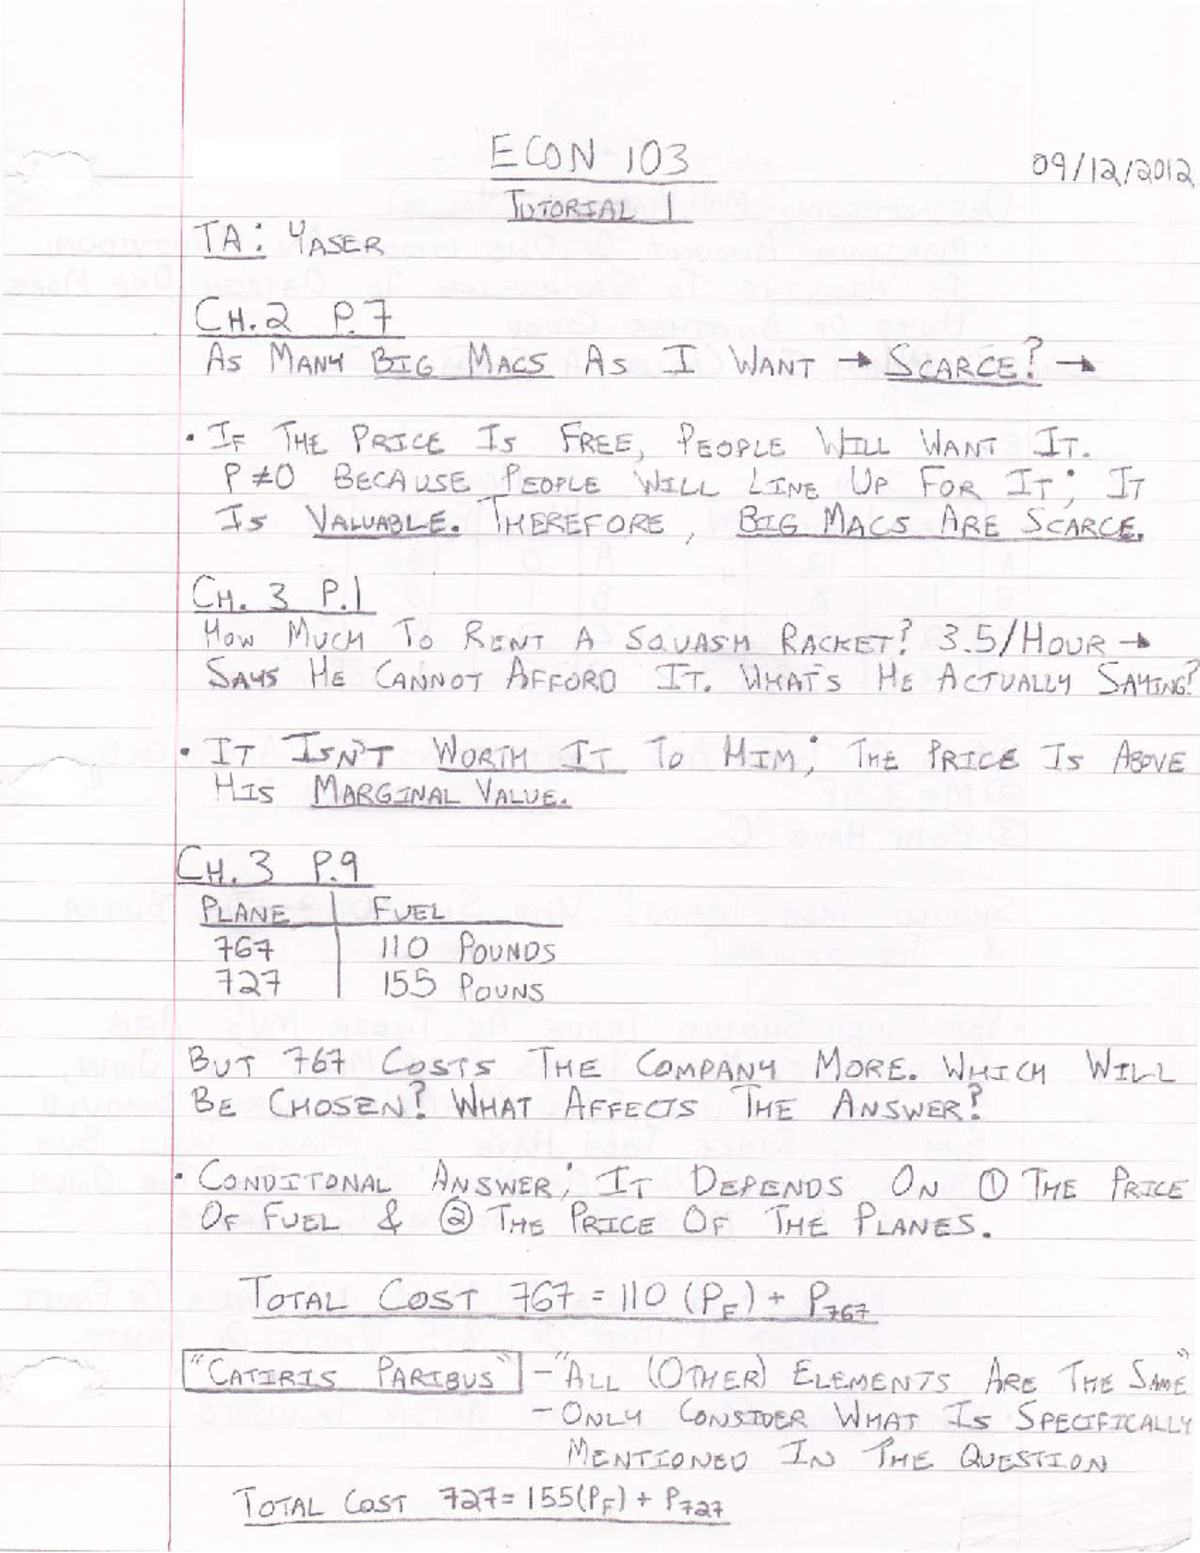 ECON 103
09/12/2012
TUTORIAL 1
TA: YASER
CH.2 P.7
AS MANY BIG MACS AS I WANT → SCARCE? →
• IF THE PRICE IS FREE, PEOPLE WILL WANT IT.
P≠0 BECAUSE PEOPLE WILL LINE UP FOR IT; IT
IS VALUABLE. THEREFORE, BIG MACS ARE SCARCE.
CH. 3 P.1
HOW MUCH TO RENT A SQUASH RACKET? 3.5/HOUR →
SAYS HE CANNOT AFFORD IT. WHAT'S HE ACTUALLY SAYING?
• IT ISN'T WORTH IT TO HIM; THE PRICE IS ABOVE
HIS MARGINAL VALUE.
CH.3 P.9
PLANE FUEL
767 110 POUNDS
727 155 POUNS
BUT 767 COSTS THE COMPANY MORE. WHICH WILL
BE CHOSEN? WHAT AFFECTS THE ANSWER?
• CONDITONAL ANSWER; IT DEPENDS ON ① THE PRICE
OF FUEL & ② THE PRICE OF THE PLANES.
TOTAL COST 767 = 110 (PF) + P767
"CATIRIS PARIBUS" - "ALL (OTHER) ELEMENTS ARE THE SAME"
- ONLY CONSIDER WHAT IS SPECIFICALLY
MENTIONED IN THE QUESTION
TOTAL COST 727 = 155(PF) + P727